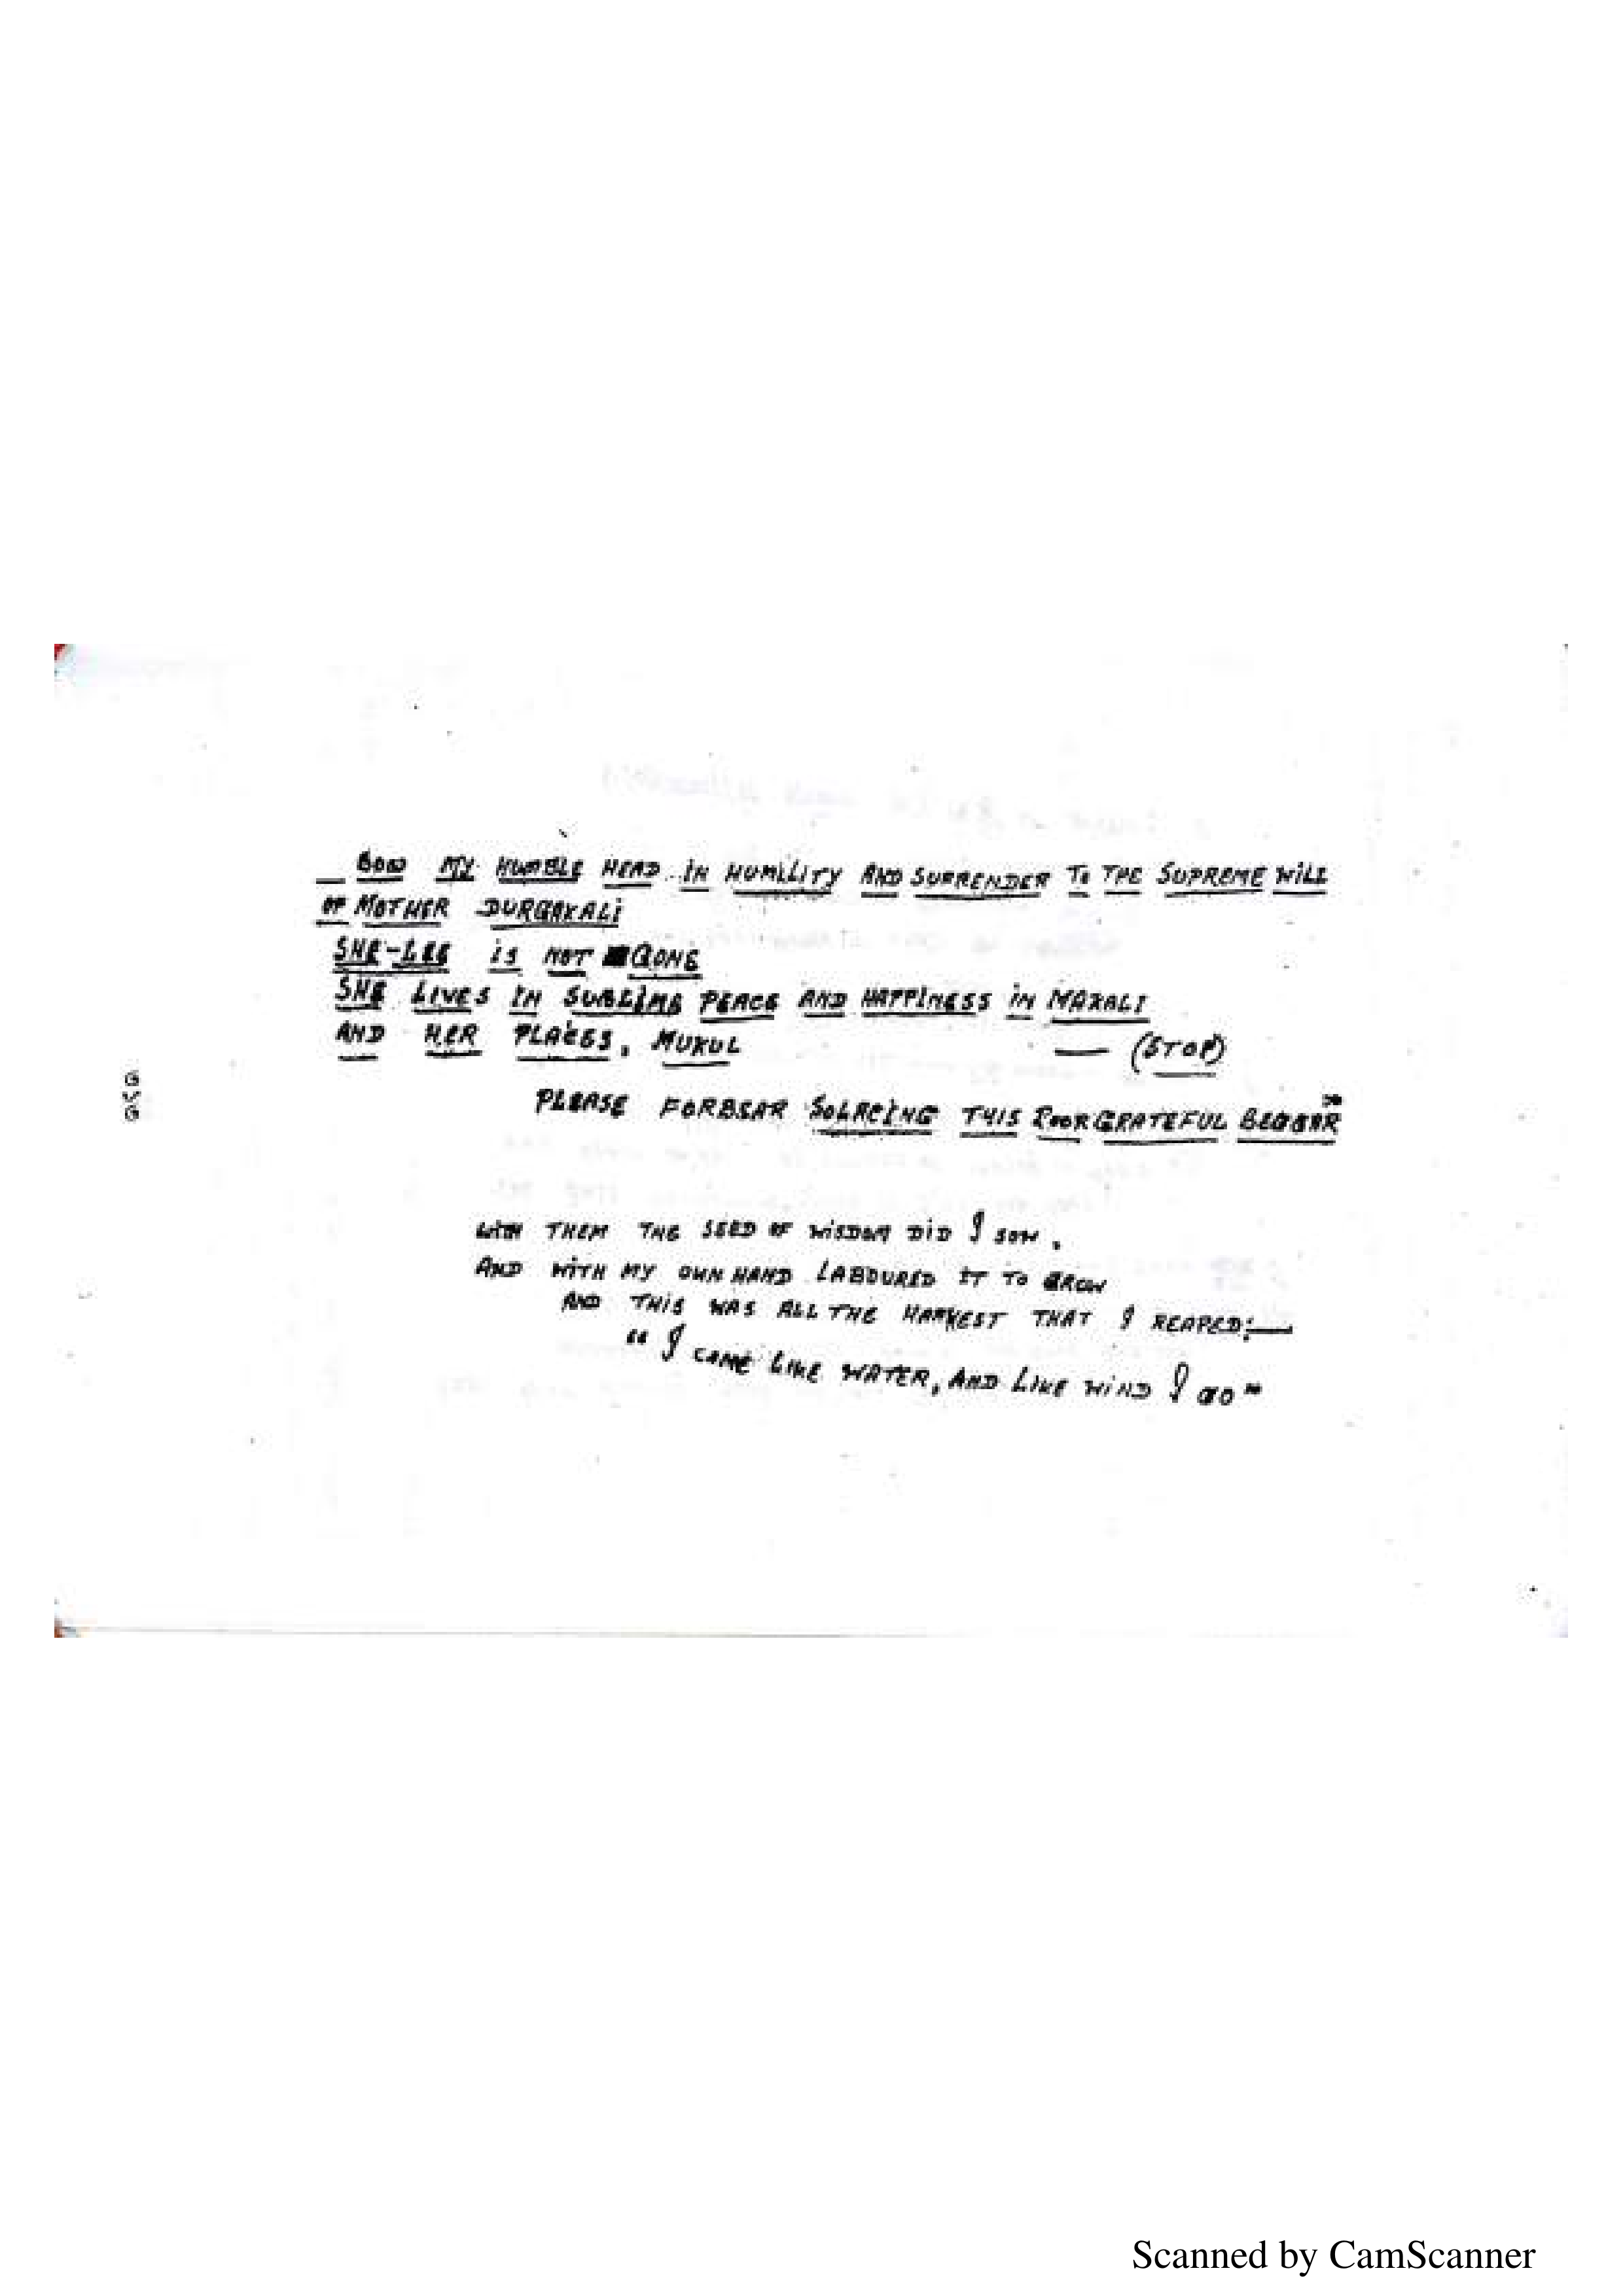 — BOW MY HUMBLE HEAD IN HUMILITY AND SURRENDER TO THE SUPREME WILL
OF MOTHER DURGAKALI
SHE-LEE IS NOT GONE
SHE LIVES IN SUBLIME PEACE AND HAPPINESS IN MAKALI
AND HER PLACES, MUKUL — (STOP)
PLEASE FORBEAR SOLACING THIS POOR GRATEFUL BEGGAR"
WITH THEM THE SEED OF WISDOM DID I SOW,
AND WITH MY OWN HAND LABOURED IT TO GROW
AND THIS WAS ALL THE HARVEST THAT I REAPED:—
"I CAME LIKE WATER, AND LIKE WIND I GO"
Scanned by CamScanner